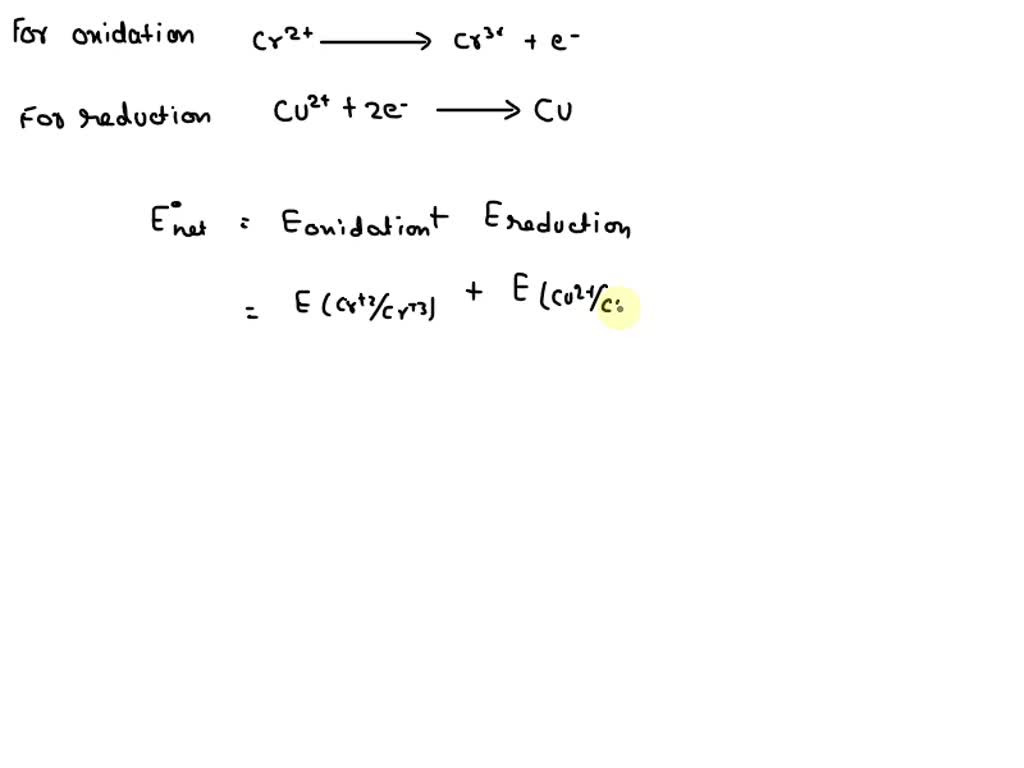 For oxidation Cr²⁺ ⟶ Cr³⁺ + e⁻
For reduction Cu²⁺ + 2e⁻ ⟶ Cu
E°net = Eoxidation + Ereduction
= E (Cr⁺²/Cr⁺³) + E (Cu²⁺/C